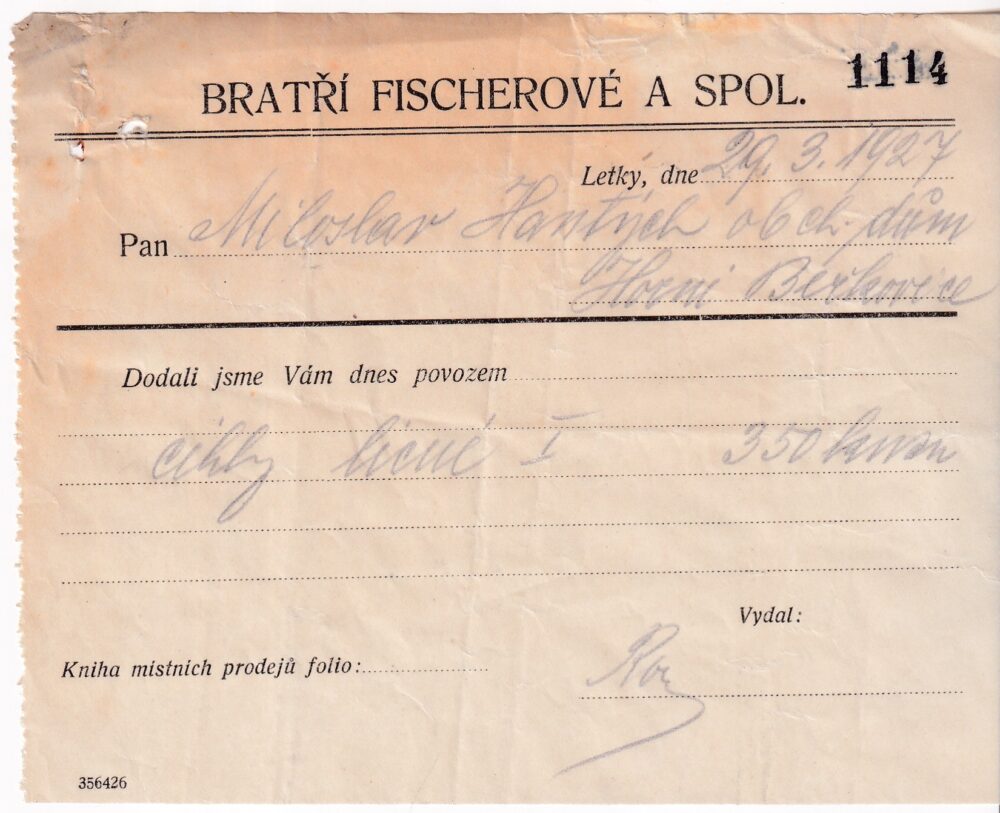 1114
BRATŘÍ FISCHEROVÉ A SPOL.
Letky, dne 29. 3. 1927
Pan Miloslav Hantých obch. dům
Horni Beřkovice
Dodali jsme Vám dnes povozem
cihly licné I 350 kusů
Vydal:
Kniha místních prodejů folio:
356426